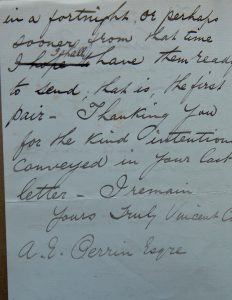 in a fortnight, or perhaps
sooner, from that time
I shall
I hope to have them ready
to send, that is, the first
pair – Thanking You
for the kind intention
conveyed in your last
letter – I remain
Yours Truly Vincent C
A. E. Perrin Esqre